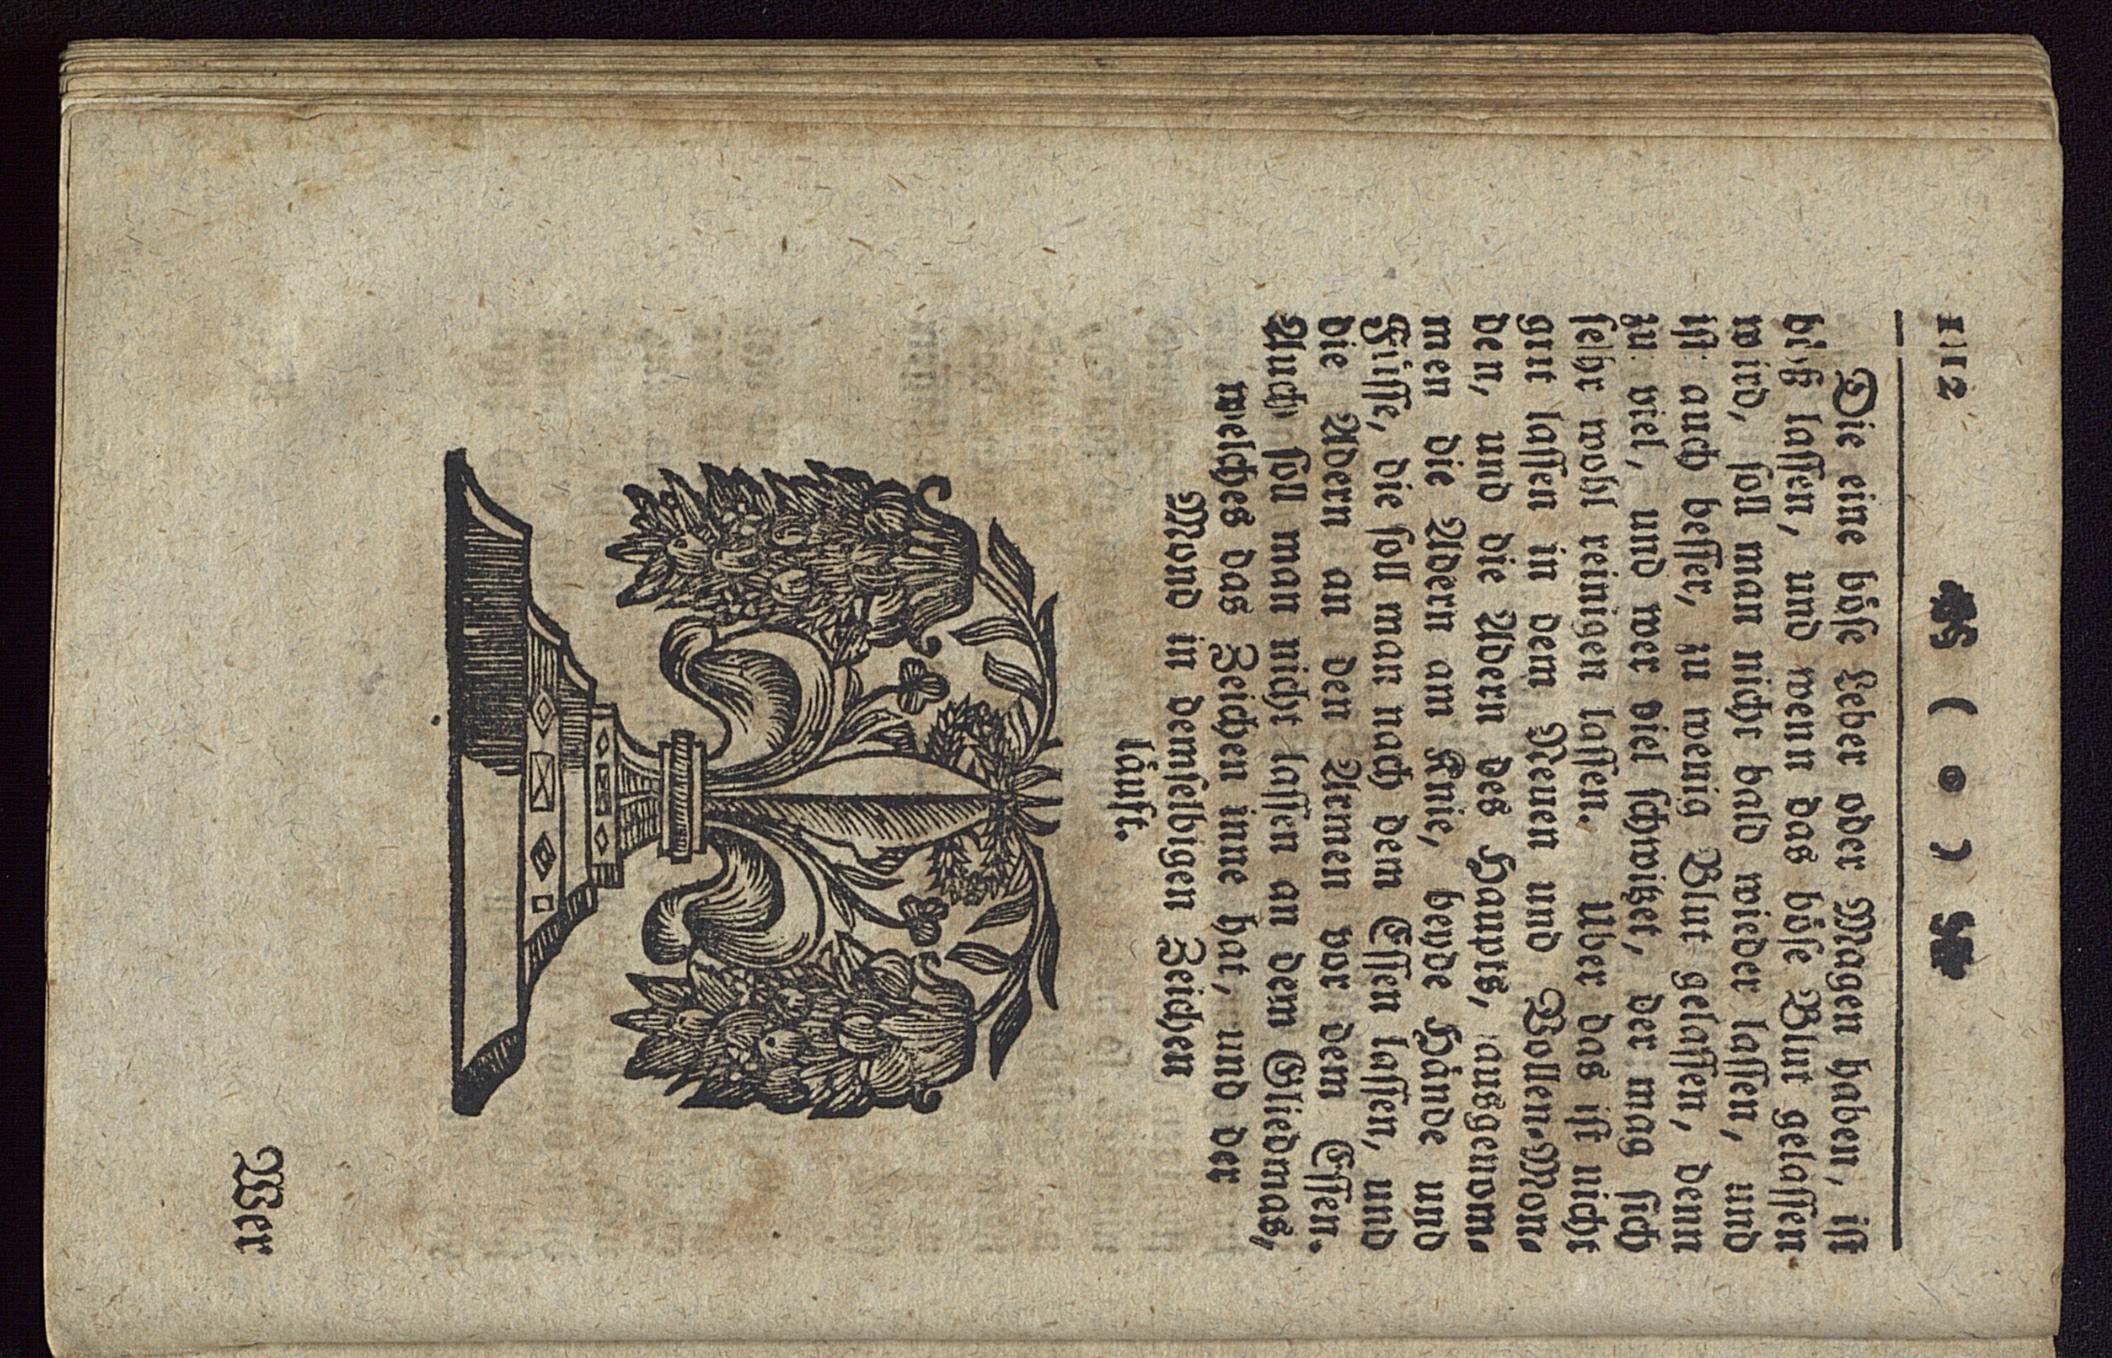 112 ( • )
Die eine böse Leber oder Magen haben, ist
böß lassen, und wenn das böse Blut gelassen
wird, soll man nicht bald wieder lassen, und
ist auch besser, zu wenig Blut gelassen, denn
zu viel, und wer viel schwitzet, der mag sich
sehr wohl reinigen lassen. Uber das ist nicht
gut lassen in dem Neuen und Vollen-Mon-
den, und die Adern des Haupts, ausgenom-
men die Adern am Knie, beyde Hände und
Füsse, die soll man nach dem Essen lassen, und
die Adern an den Armen vor dem Essen.
Auch soll man nicht lassen an dem Gliedmas,
welches das Zeichen inne hat, und der
Mond in denselbigen Zeichen
läuft.
Wer